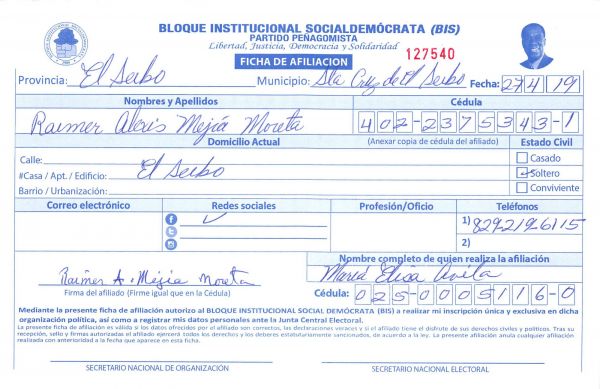 BLOQUE INSTITUCIONAL SOCIALDEMÓCRATA (BIS)
PARTIDO PEÑAGOMISTA
Libertad, Justicia, Democracia y Solidaridad
127540
FICHA DE AFILIACION
Provincia: El Seibo Municipio: Sta Cruz de El Seibo Fecha: 27/4/19
Nombres y Apellidos Cédula
Raimer Alexis Mejía Moreta 402-2375343-1
Domicilio Actual (Anexar copia de cédula del afiliado) Estado Civil
Calle: Casado
#Casa / Apt. / Edificio: El Seibo Soltero
Barrio / Urbanización: Conviviente
Correo electrónico Redes sociales Profesión/Oficio Teléfonos
1) 8292196115
2)
Nombre completo de quien realiza la afiliación
Raimer A. Mejía Moreta María Elisa
Firma del afiliado (Firme igual que en la Cédula) Cédula: 025-0005116-0
Mediante la presente ficha de afiliación autorizo al BLOQUE INSTITUCIONAL SOCIAL DEMÓCRATA (BIS) a realizar mi inscripción única y exclusiva en dicha
organización política, así como a registrar mis datos personales ante la Junta Central Electoral.
La presente ficha de afiliación es válida si los datos ofrecidos por el afiliado son correctos, las declaraciones veraces y si el afiliado tiene el disfrute de sus derechos civiles y políticos. Tras su
recepción, sello y firmas autorizadas el afiliado ejercerá todos los derechos y los deberes estatutariamente sancionados, de acuerdo a la ley. La presente afiliación anula cualquier afiliación
realizada con anterioridad a la fecha que aparece en esta ficha.
SECRETARIO NACIONAL DE ORGANIZACIÓN SECRETARIO NACIONAL ELECTORAL